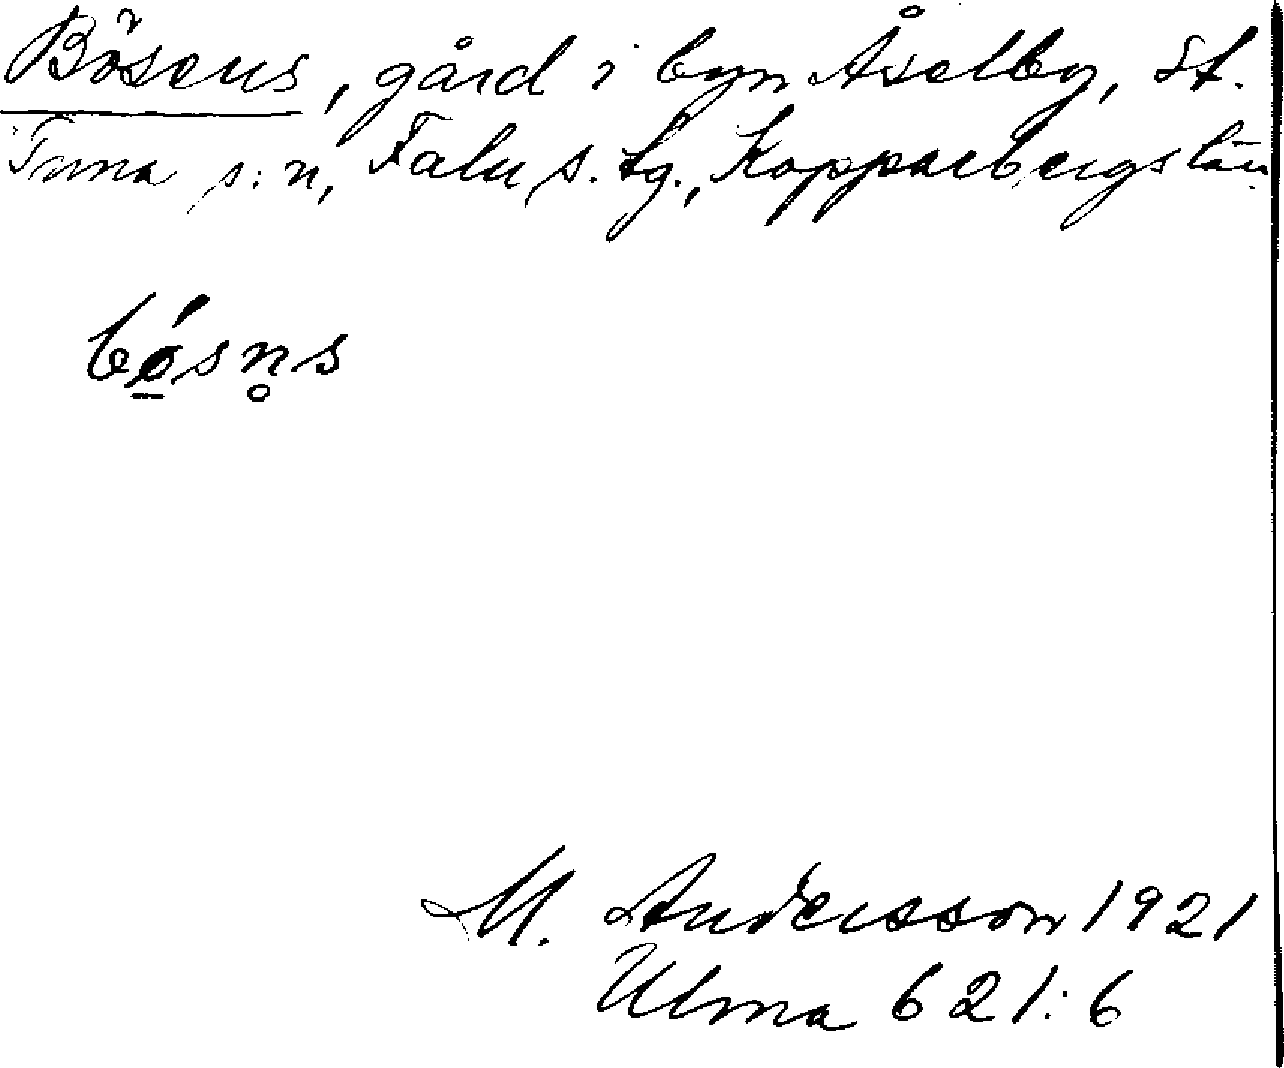 Bösens, gård i byn Åselby, St.
Tuna s:n, Falu s. tg., Kopparbergs län
bǿ̲sn̥s
M. Andersson 1921
Ulma 621:6